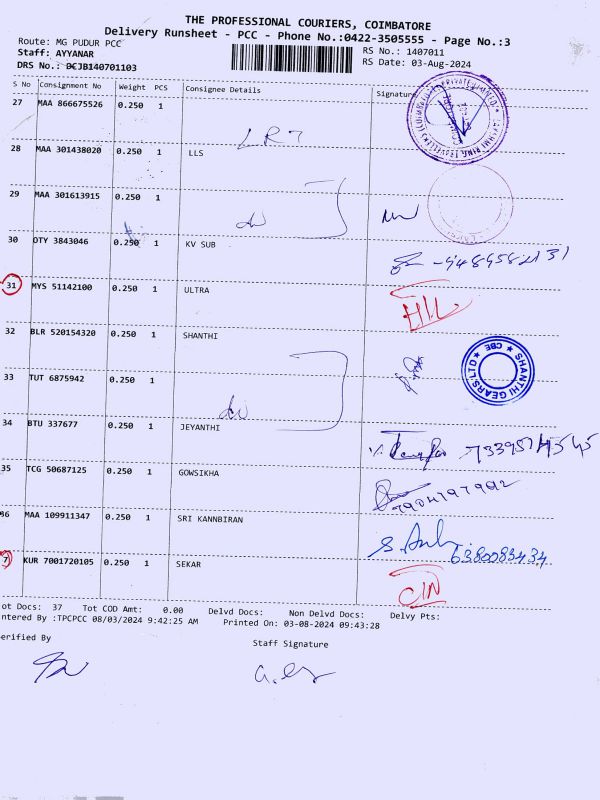 THE PROFESSIONAL COURIERS, COIMBATORE
Delivery Runsheet - PCC - Phone No.:0422-3505555 - Page No.:3
Route: MG PUDUR PCC RS No.: 1407011
Staff: AYYANAR RS Date: 03-Aug-2024
DRS No.: DCJB140701103
S No Consignment No Weight PCS Consignee Details Signature
27 MAA 866675526 0.250 1 LRT
28 MAA 301438020 0.250 1 LLS
29 MAA 301613915 0.250 1
30 OTY 3843046 0.250 1 KV SUB
31 MYS 51142100 0.250 1 ULTRA
32 BLR 520154320 0.250 1 SHANTHI
SHANTHI GEARS LTD ★ CBE ★
33 TUT 6875942 0.250 1
34 BTU 337677 0.250 1 JEYANTHI
35 TCG 50687125 0.250 1 GOWSIKHA 7904797992
36 MAA 109911347 0.250 1 SRI KANNBIRAN 6380083434
7 KUR 7001720105 0.250 1 SEKAR
ot Docs: 37 Tot COD Amt: 0.00 Delvd Docs: Non Delvd Docs: Delvy Pts:
ntered By :TPCPCC 08/03/2024 9:42:25 AM Printed On: 03-08-2024 09:43:28
erified By Staff Signature